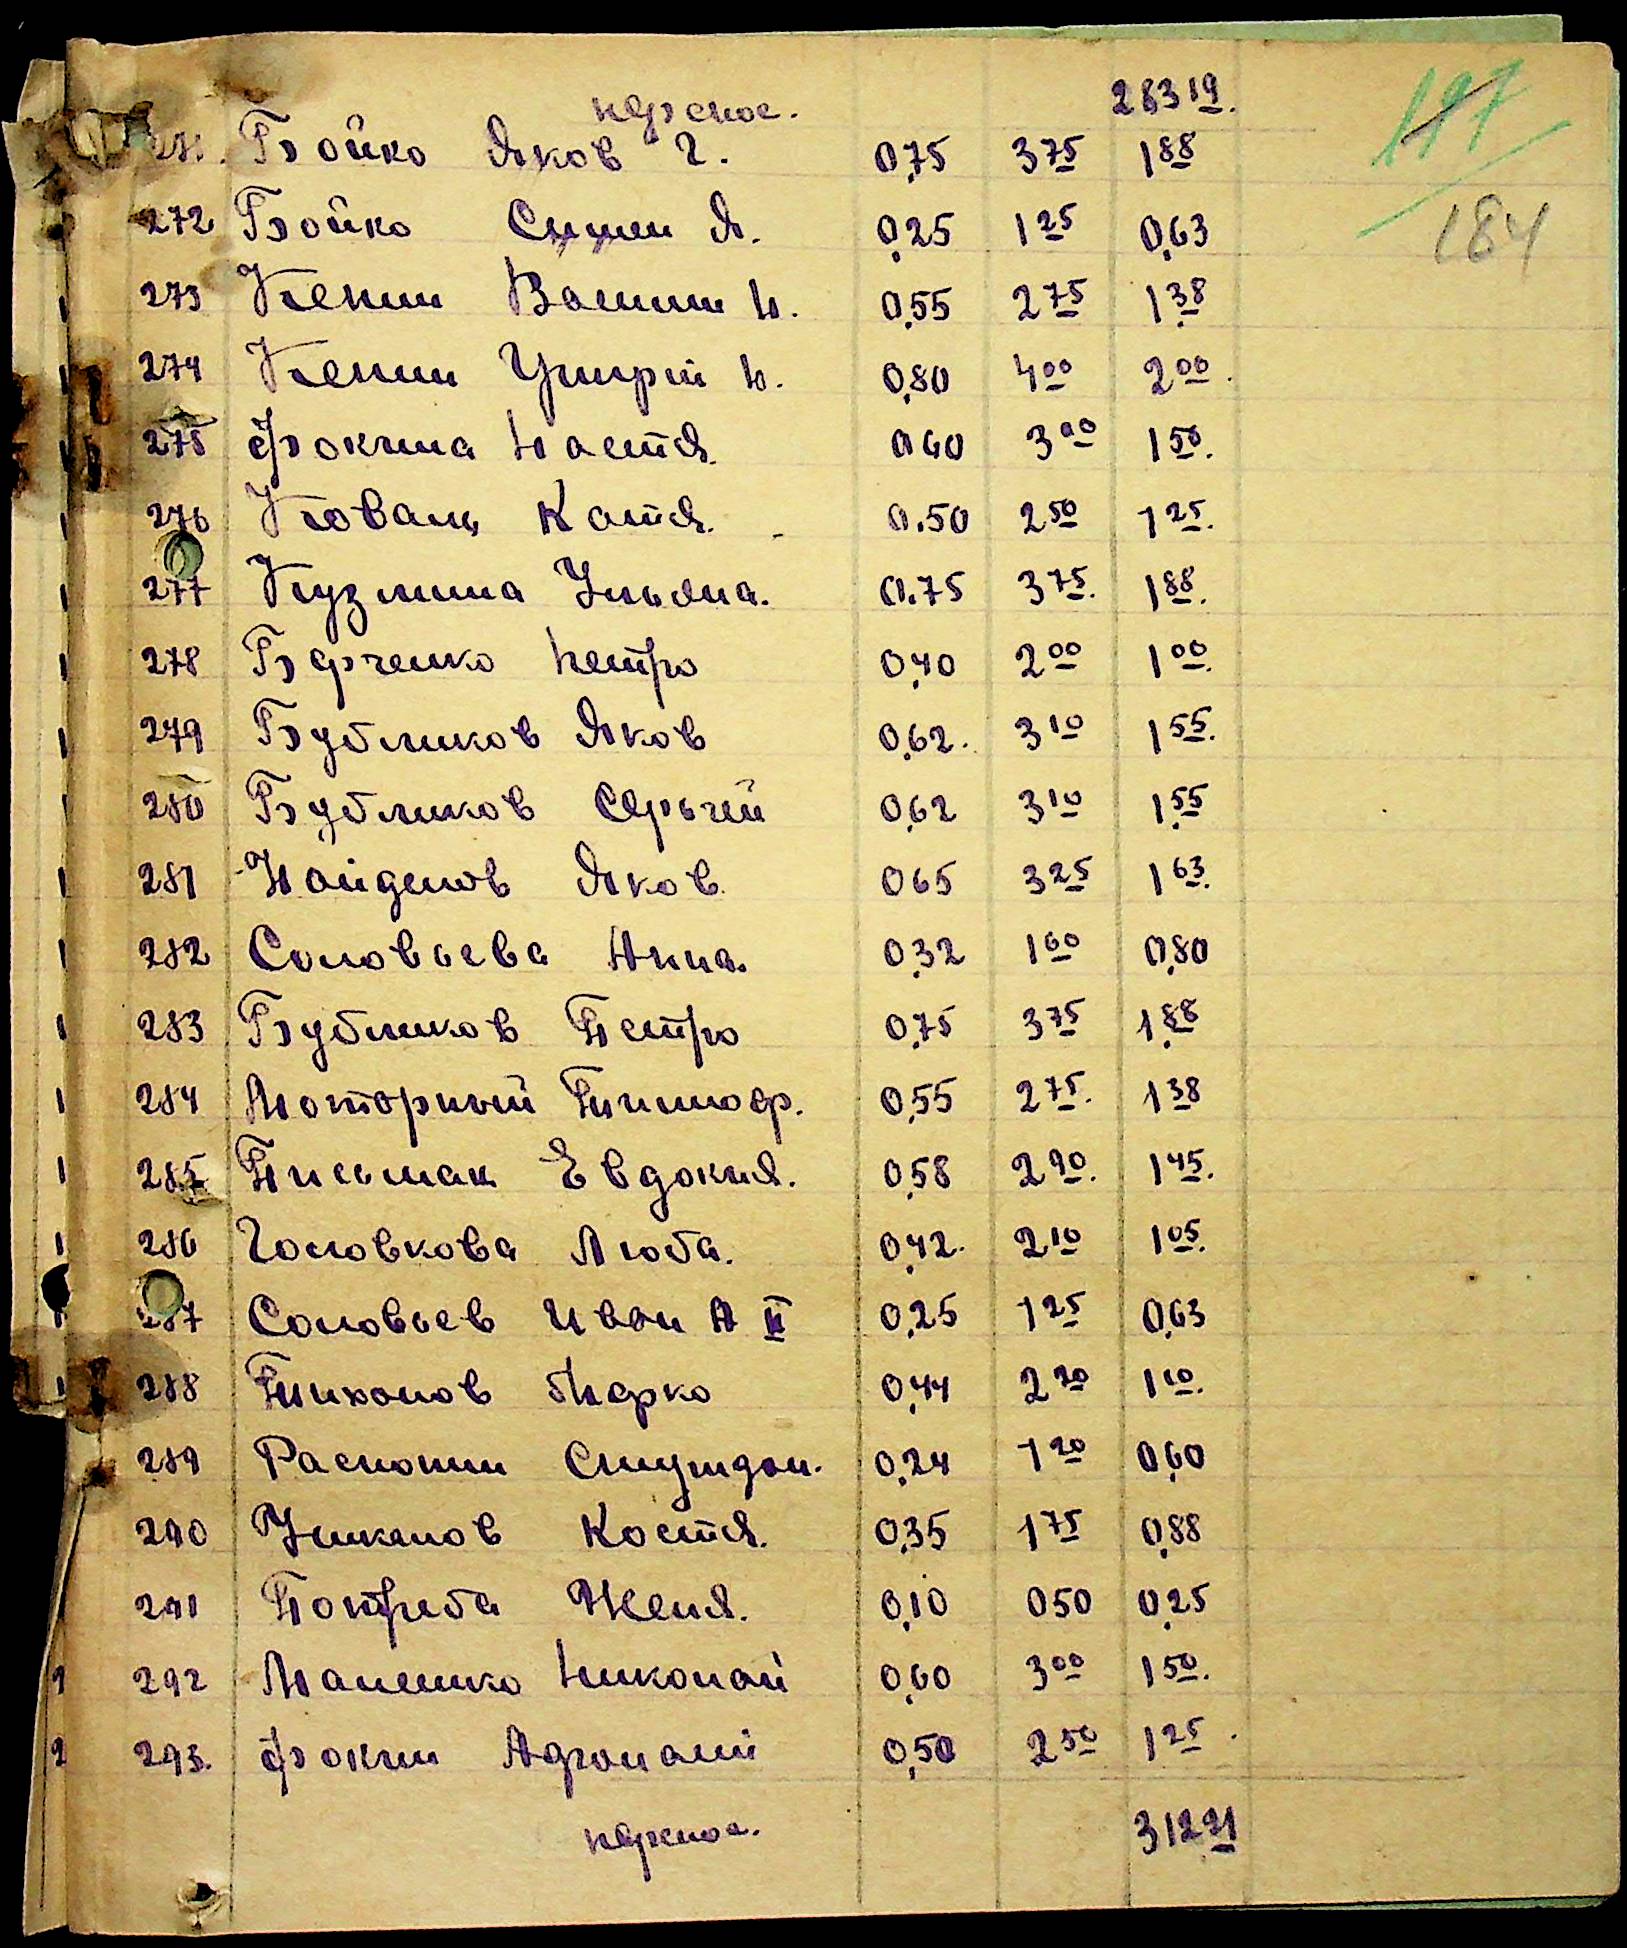 перенос. 28319.
197
184
271. Бойко Яков Г. 0,75 375 188
272 Бойко Симен Я. 0,25 125 0,63
273 Кенин Василь И. 0,55 275 138
274 Кенин И. 0,80 400 200.
275 Фокина Настя. 060 300 150.
276 Коваль Катя. 0.50 250 125.
277 Кузмина Ульяна. 0.75 375. 188.
278 Бедченко Петро 0,40 200 100.
279 Бубликов Яков 0,62. 310 155.
280 Бубликов Сергей 0,62 310 155
281 Найденов Яков. 065 325 163.
282 Соловьева Анна. 0,32 160 0,80
283 Бубликов Петро 0,75 375 188
284 Моторный Тимофр. 0,55 275. 138
285 Письмак Евдокия. 0,58 290. 145.
286 Головкова Люба. 0,42. 210 105.
287 Соловьев Иван А II 0,25 125 0,63
288 Тихонов Марко 0,44 220 110.
289 Распопин 0,24 120 0,60
290 Костя. 0,35 175 0,88
291 Потреба Женя. 0,10 050 0,25
292 Маленко Николай 0,60 300 150.
293. Фокин 0,50 250 125.
перенос. 31221